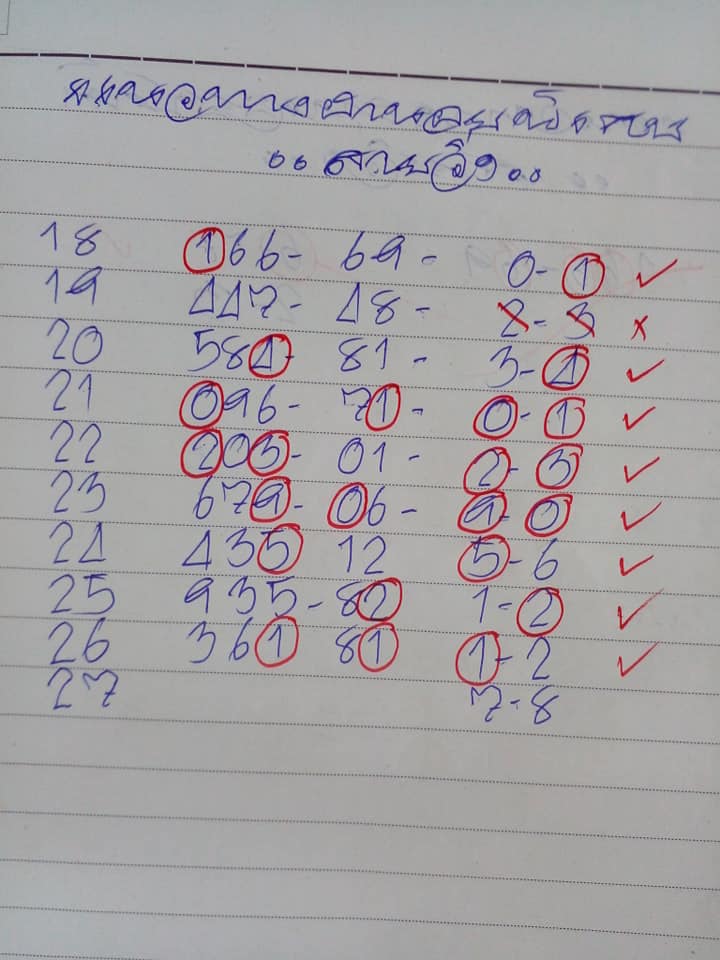 18 166- 69 - 0-1 ✓
19 447- 48 - 2-3 x
20 584- 81 - 3-4 ✓
21 096- 71 - 0-1 ✓
22 203- 01 - 2-3 ✓
23 679- 06 - 9-0 ✓
24 435 12 5-6 ✓
25 935-82 1-2 ✓
26 361 81 1-2 ✓
27 7-8